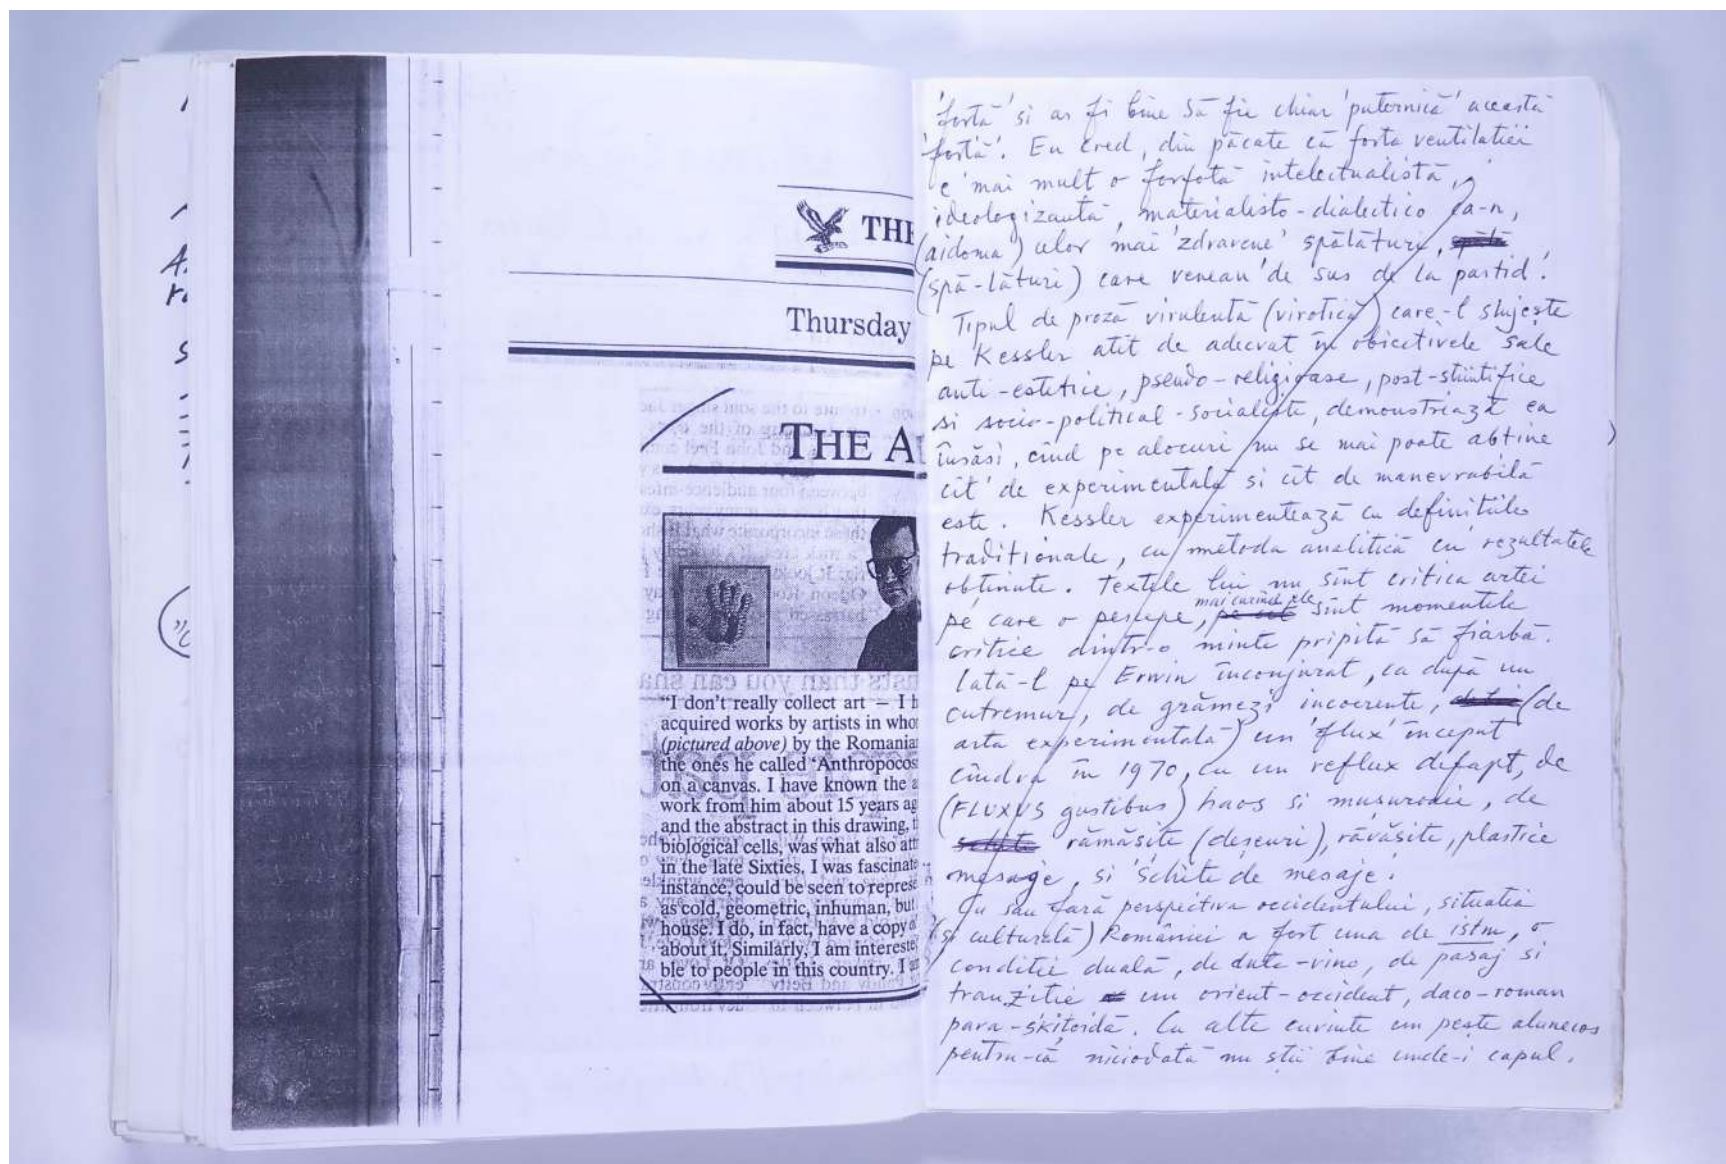 THE
Thursday
THE A
"I don't really collect art — I h
acquired works by artists in who
(pictured above) by the Romania
the ones he called 'Anthropocos
on a canvas. I have known the a
work from him about 15 years ag
and the abstract in this drawing, t
biological cells, was what also att
in the late Sixties. I was fascinat
instance, could be seen to represe
as cold, geometric, inhuman, but
house. I do, in fact, have a copy o
about it. Similarly, I am intereste
ble to people in this country. I
'fortă' si ar fi bine să fie chiar 'puternică' această
'fortă'. Eu cred, din păcate că forta ventilatiei
e mai mult o forfotă intelectualistă,
ideologizantă, materialisto-dialectico
(aidoma) celor mai 'zdravene' spălături,
(spă-lături) care veneau 'de sus de la partid'.
Tipul de proză virulentă (virotică) care-l slujește
pe Kessler atît de adecvat în obiectivele sale
anti-estetice, pseudo-religioase, post-stiintifice
si socio-political-socialiste, demonstrează ea
însăsi, cînd pe alocuri nu se mai poate abtine
cît de experimentală si cît de manevrabilă
este. Kessler experimentează cu definitiile
traditionale, cu metoda analitică cu rezultatele
obtinute. Textele lui nu sînt critica artei
pe care o percepe, mai curînd ele sînt momentele
critice dintr-o minte pripită să fiarbă.
Iată-l pe Erwin înconjurat, ca după un
cutremur, de grămezi incoerente, (de
arta experimentală) un 'flux' început
cîndva în 1970, cu un reflux defapt, de
(FLUXUS gustibus) haos si
rămăsite (deșeuri), răvăsite, plastice
mesage, si 'schite de mesaje'.
Cu sau fară perspectiva occidentului, situatia
(si culturală) României a fost una de istm, o
conditie duală, de dute-vino, de pasaj si
tranzitie un orient-occident, daco-roman
para-skitoidă. Cu alte cuvinte un pește alunecos
pentru-că niciodată nu stii bine unde-i capul.